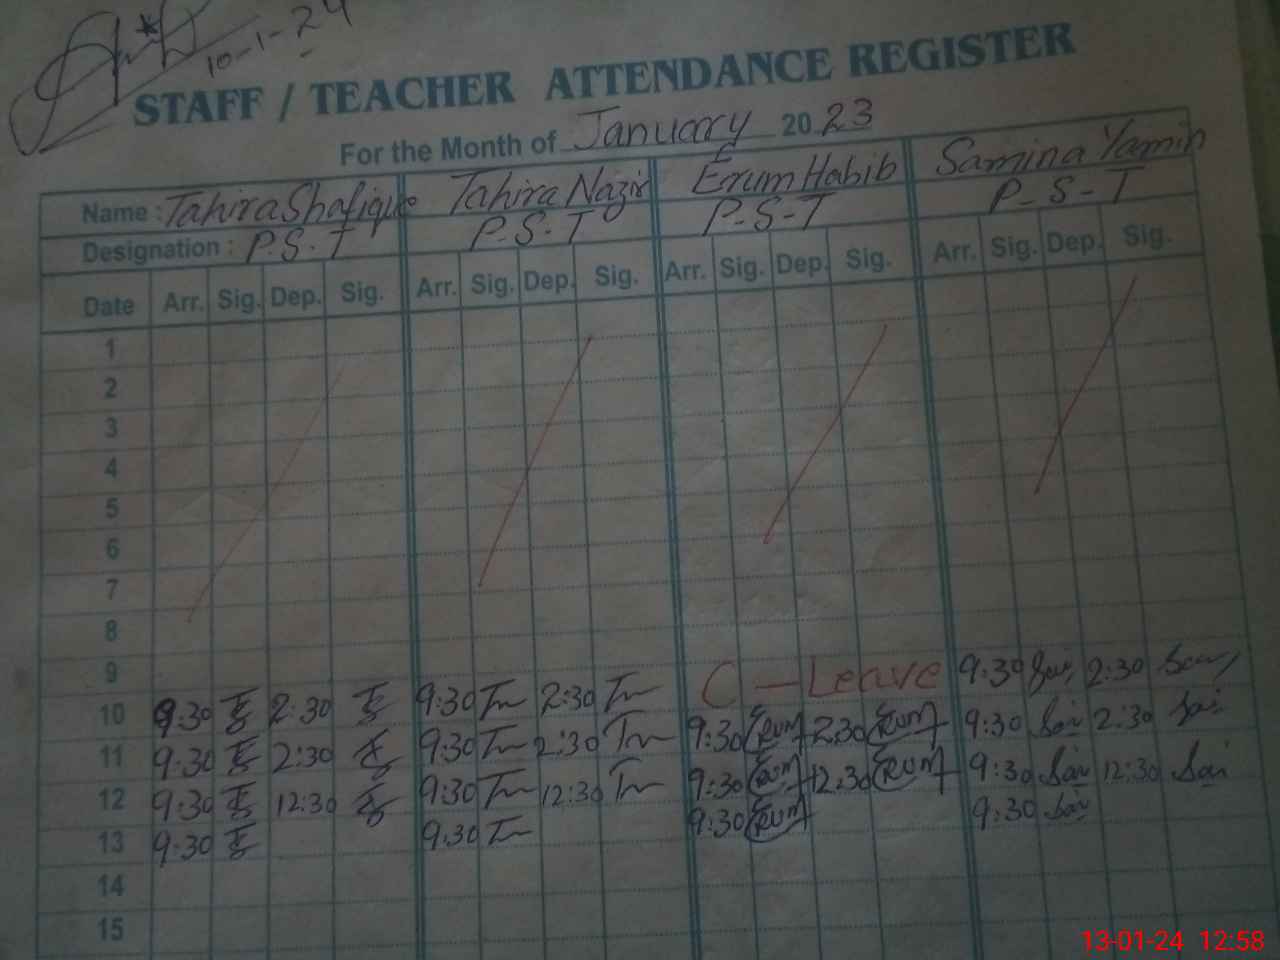 10-1-24
STAFF / TEACHER ATTENDANCE REGISTER
For the Month of January 2023
Name : Tahira Shafique Tahira Nazir Erum Habib Samina Yamin
Designation : P.S.T P-S.T P-S-T P-S-T
Date Arr. Sig. Dep. Sig. Arr. Sig. Dep. Sig. Arr. Sig. Dep. Sig. Arr. Sig. Dep. Sig.
1
2
3
4
5
6
7
8
9
10 9:30 2:30 9:30 Tn 2:30 Tn C - Leave 9:30 2:30
11 9:30 2:30 9:30 Tn 2:30 Tn 9:30 Erum 2:30 Erum 9:30 2:30
12 9:30 12:30 9:30 Tn 12:30 Tn 9:30 Erum 12:30 Erum 9:30 12:30
13 9:30 9:30 Tn 9:30 Erum 9:30
14
15
13-01-24 12:58